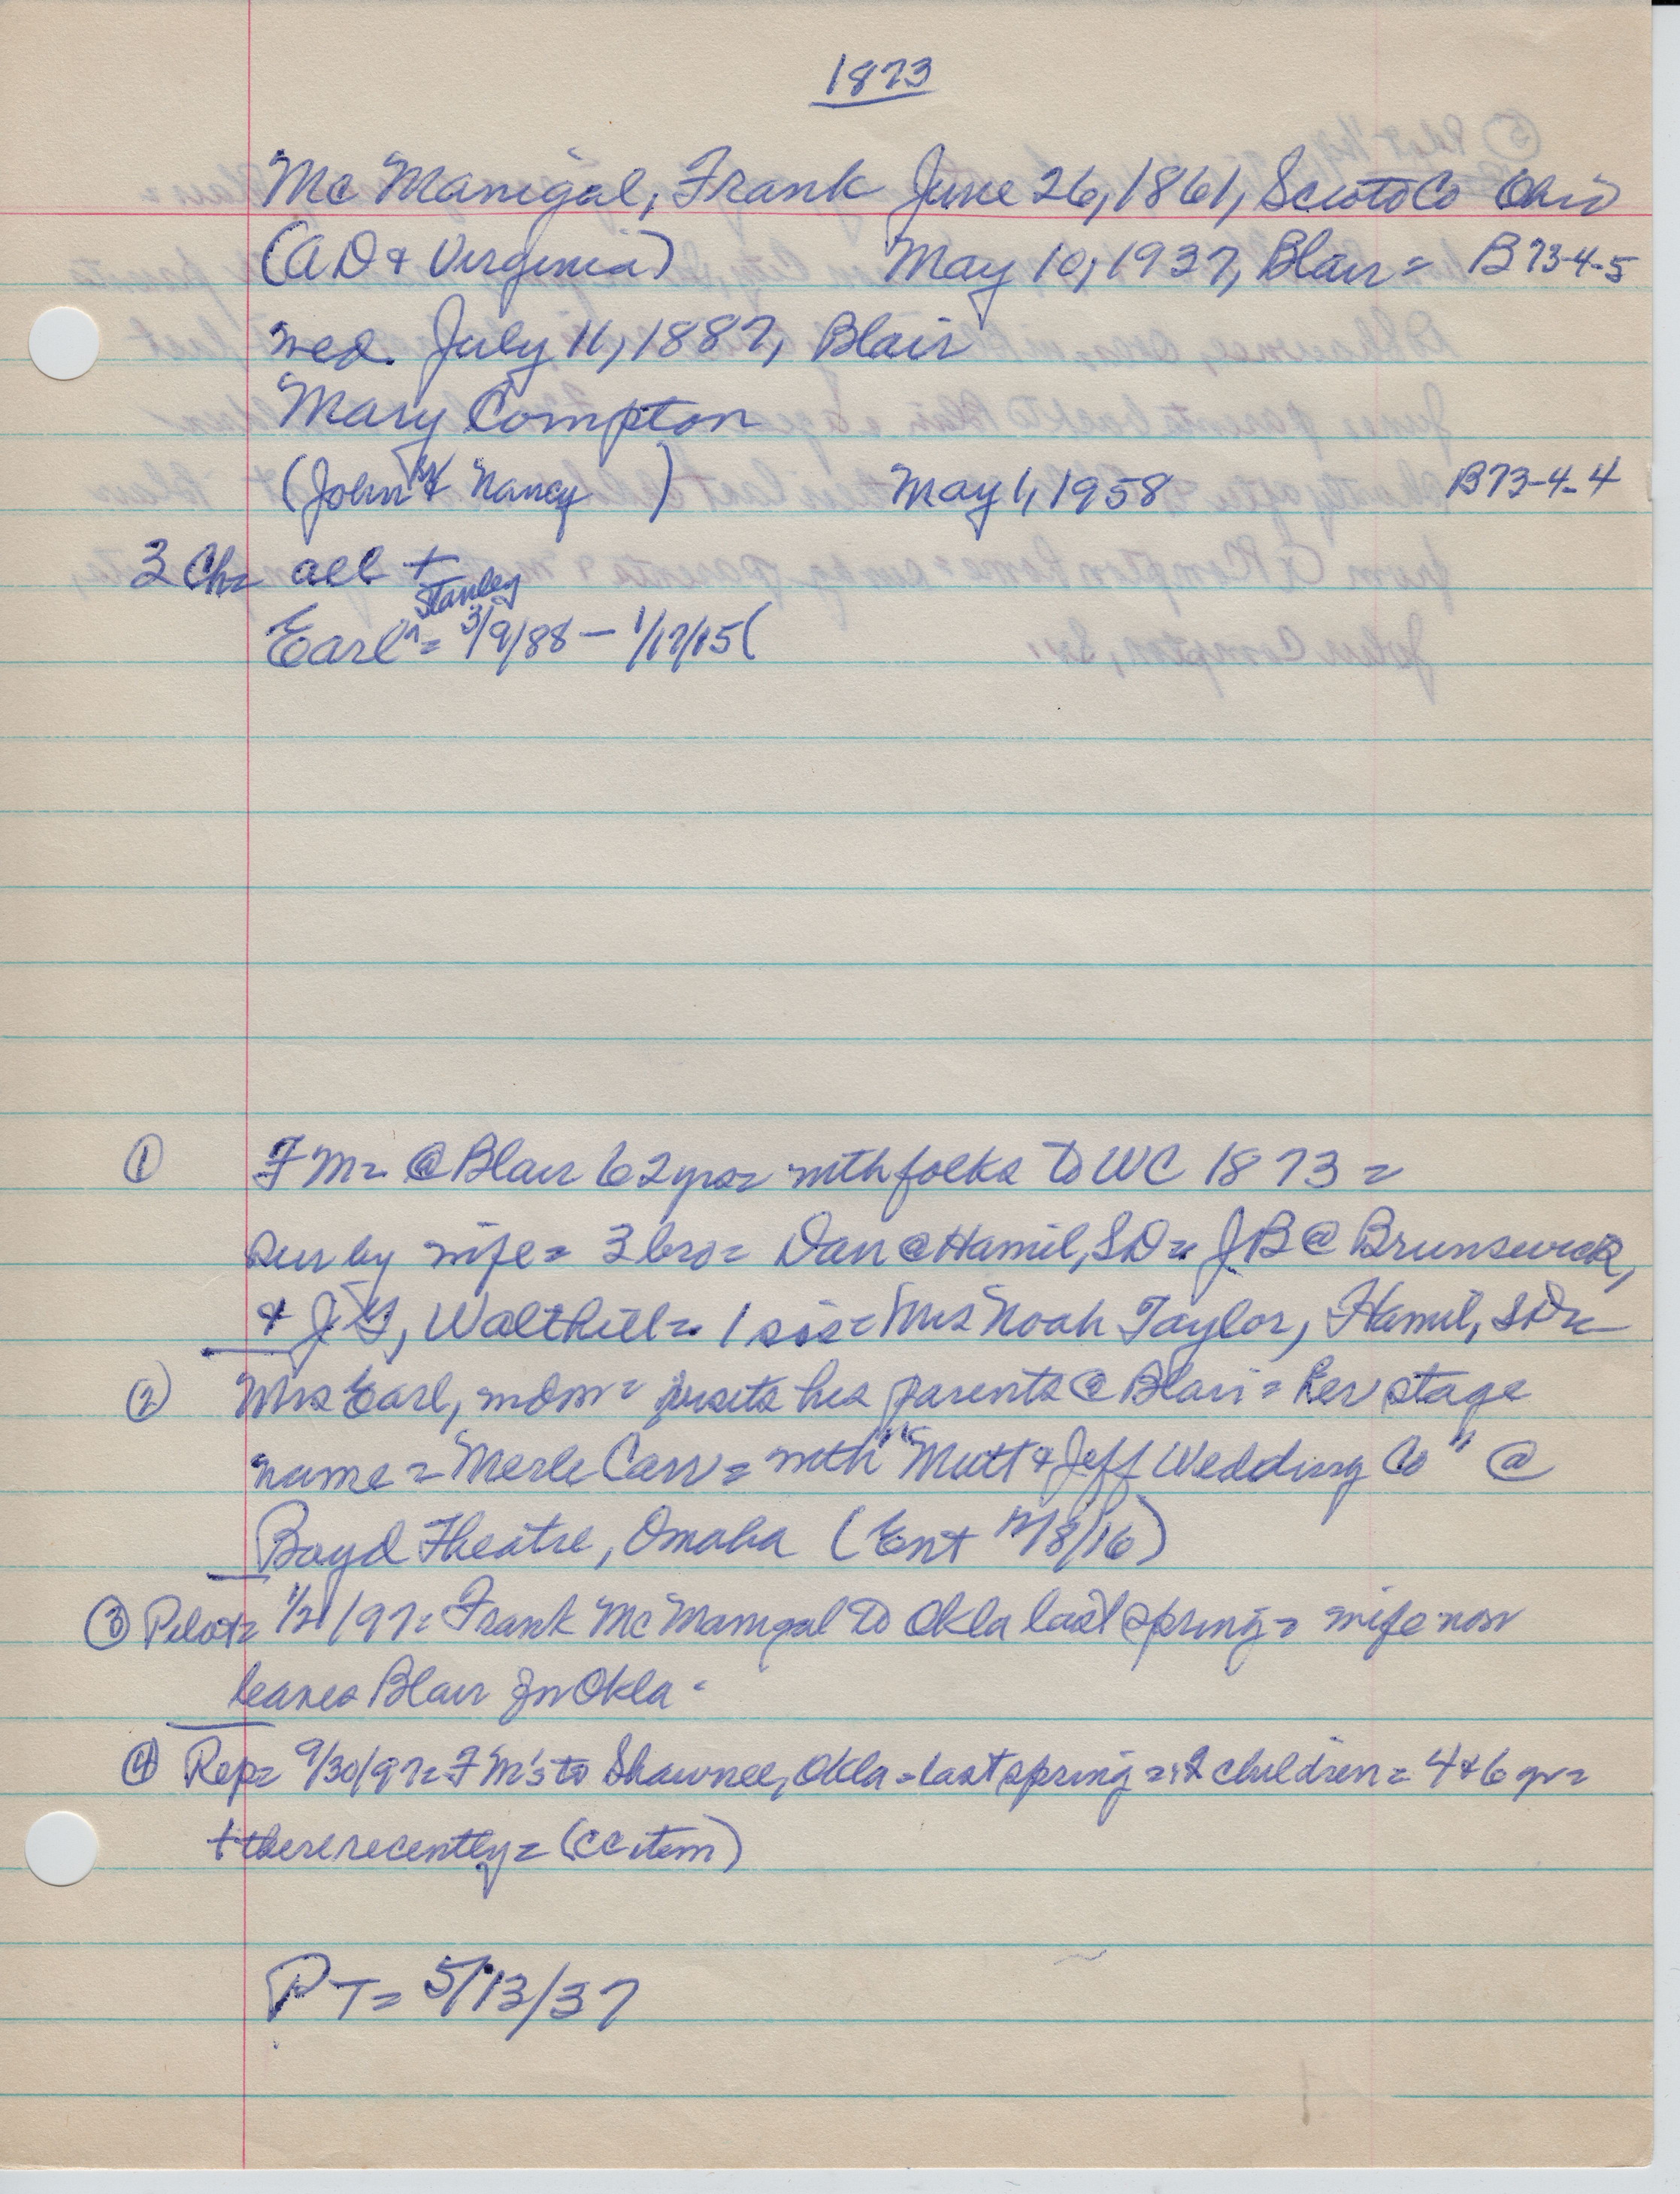 1873
Mc Manigal, Frank June 26, 1861, Scioto Co Ohio
(A D & Virginia) May 10, 1937, Blair = B 73-4-5
wed. July 11, 1887, Blair
Mary Compton
(John & Nancy ) May 1, 1958 B73-4-4
3 Ch= all +
Stanley
Earl ^ = 3/9/88 - 1/17/15 (
① F M = @ Blair 62 yrs = with folks to WC 1873 =
Sur by wife = 3 bro = Dan @ Hamil, SD = J B @ Brunswick,
& J Y, Walthill = 1 sis = Mrs Noah Taylor, Hamil, SD =
② Mrs Earl, mdsn = visits his parents @ Blair = Her stage
name = Merle Carr = with "Mutt & Jeff Wedding Co" @
Boyd Theatre, Omaha (Ent 12/8/16)
③ Pilot = 1/21/97 = Frank Mc Manigal to Okla last spring = wife now
leaves Blair for Okla -
④ Rep = 9/30/97 = F M's to Shawnee, Okla = last spring = 2 children = 4 & 6 yr =
+ there recently = (CC item)
PT = 5/13/37